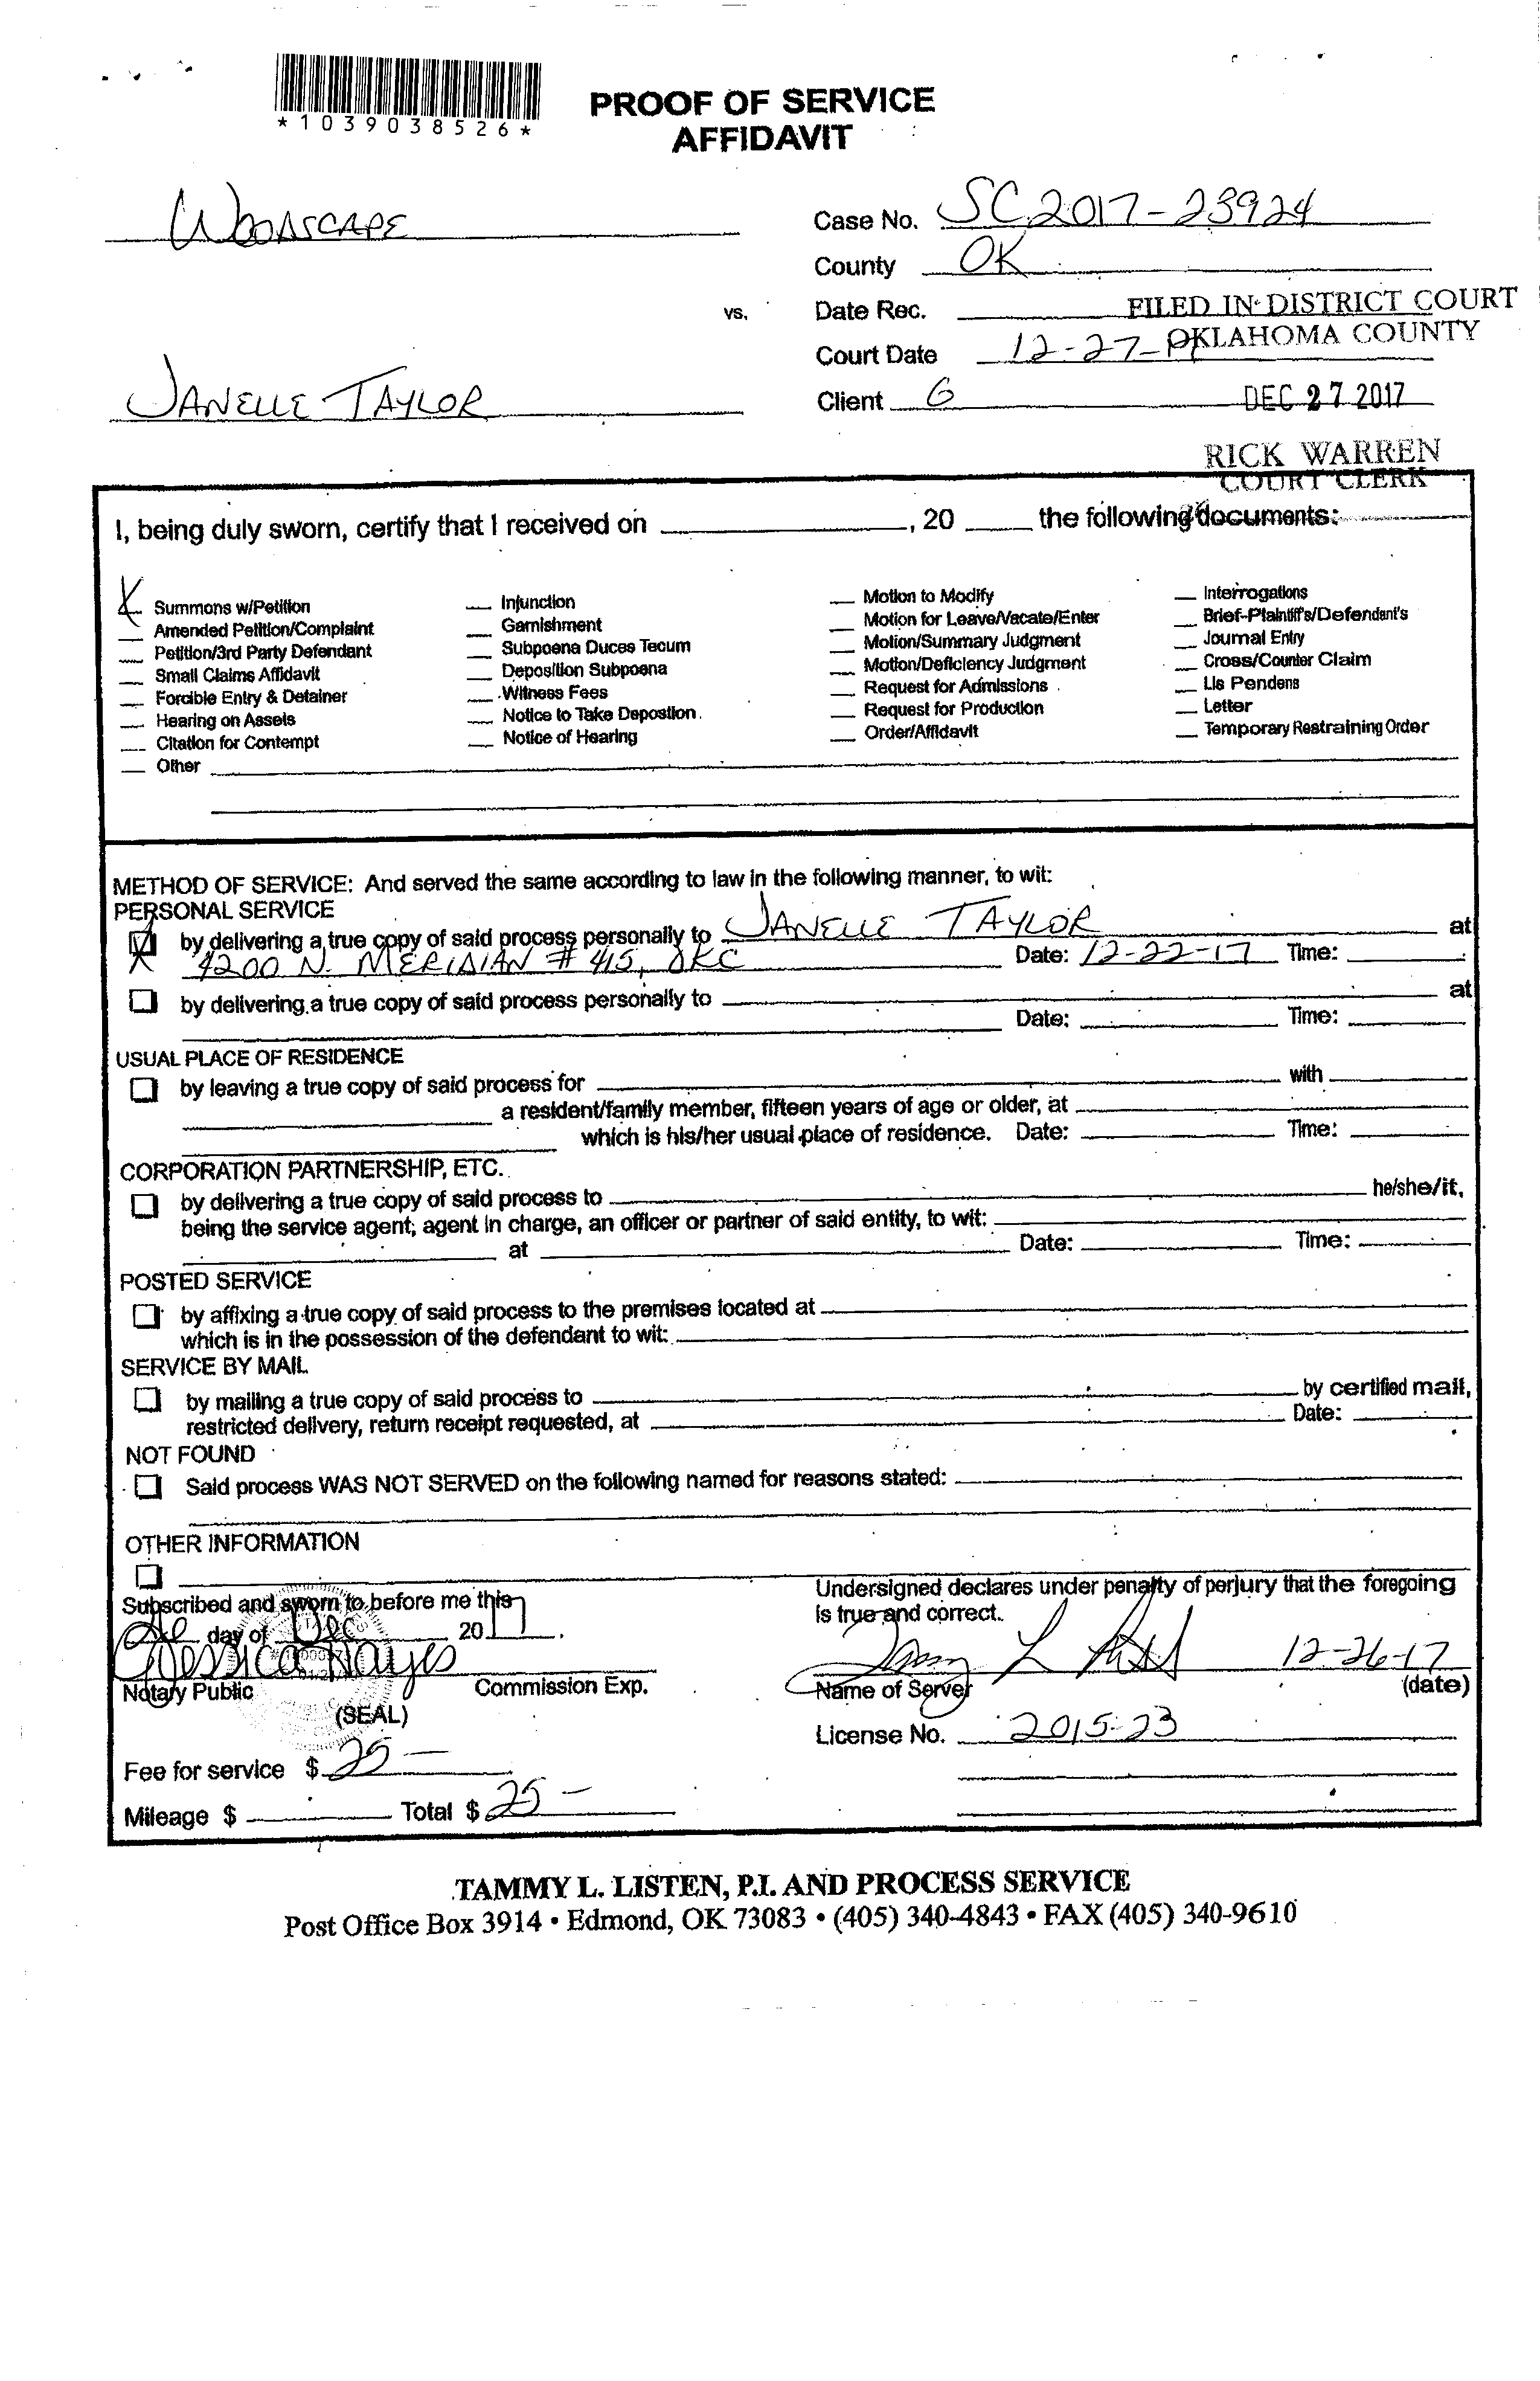 *1039038526*
PROOF OF SERVICE
AFFIDAVIT
WOODSCAPE
Case No. SC2017-23924
County OK
vs.
Date Rec.
FILED IN DISTRICT COURT
OKLAHOMA COUNTY
Court Date 12-27-17
JANELLE TAYLOR
Client G
DEC 27 2017
RICK WARREN
COURT CLERK
I, being duly sworn, certify that I received on ____, 20 ____ the following documents:
X Summons w/Petition
Amended Petition/Complaint
Petition/3rd Party Defendant
Small Claims Affidavit
Forcible Entry & Detainer
Hearing on Assets
Citation for Contempt
Other
Injunction
Garnishment
Subpoena Duces Tecum
Deposition Subpoena
Witness Fees
Notice to Take Depostion
Notice of Hearing
Motion to Modify
Motion for Leave/Vacate/Enter
Motion/Summary Judgment
Motion/Deficiency Judgment
Request for Admissions
Request for Production
Order/Affidavit
Interrogations
Brief-Plaintiff's/Defendant's
Journal Entry
Cross/Counter Claim
Lis Pendens
Letter
Temporary Restraining Order
METHOD OF SERVICE: And served the same according to law in the following manner, to wit:
PERSONAL SERVICE
by delivering a true copy of said process personally to JANELLE TAYLOR at
4200 N. MERIDIAN #415, OKC Date: 12-22-17 Time:
by delivering a true copy of said process personally to at
Date: Time:
USUAL PLACE OF RESIDENCE
by leaving a true copy of said process for with
a resident/family member, fifteen years of age or older, at
which is his/her usual place of residence. Date: Time:
CORPORATION PARTNERSHIP, ETC.
by delivering a true copy of said process to he/she/it,
being the service agent, agent in charge, an officer or partner of said entity, to wit:
at Date: Time:
POSTED SERVICE
by affixing a true copy of said process to the premises located at
which is in the possession of the defendant to wit:
SERVICE BY MAIL
by mailing a true copy of said process to by certified mail,
restricted delivery, return receipt requested, at Date:
NOT FOUND
Said process WAS NOT SERVED on the following named for reasons stated:
OTHER INFORMATION
Subscribed and sworn to before me this
26 day of Dec 2017.
Jessica Hayes
Notary Public Commission Exp.
(SEAL)
Undersigned declares under penalty of perjury that the foregoing
is true and correct.
12-26-17
Name of Server (date)
License No. 2015-23
Fee for service $ 25 —
Mileage $ Total $ 25 —
TAMMY L. LISTEN, P.I. AND PROCESS SERVICE
Post Office Box 3914 • Edmond, OK 73083 • (405) 340-4843 • FAX (405) 340-9610